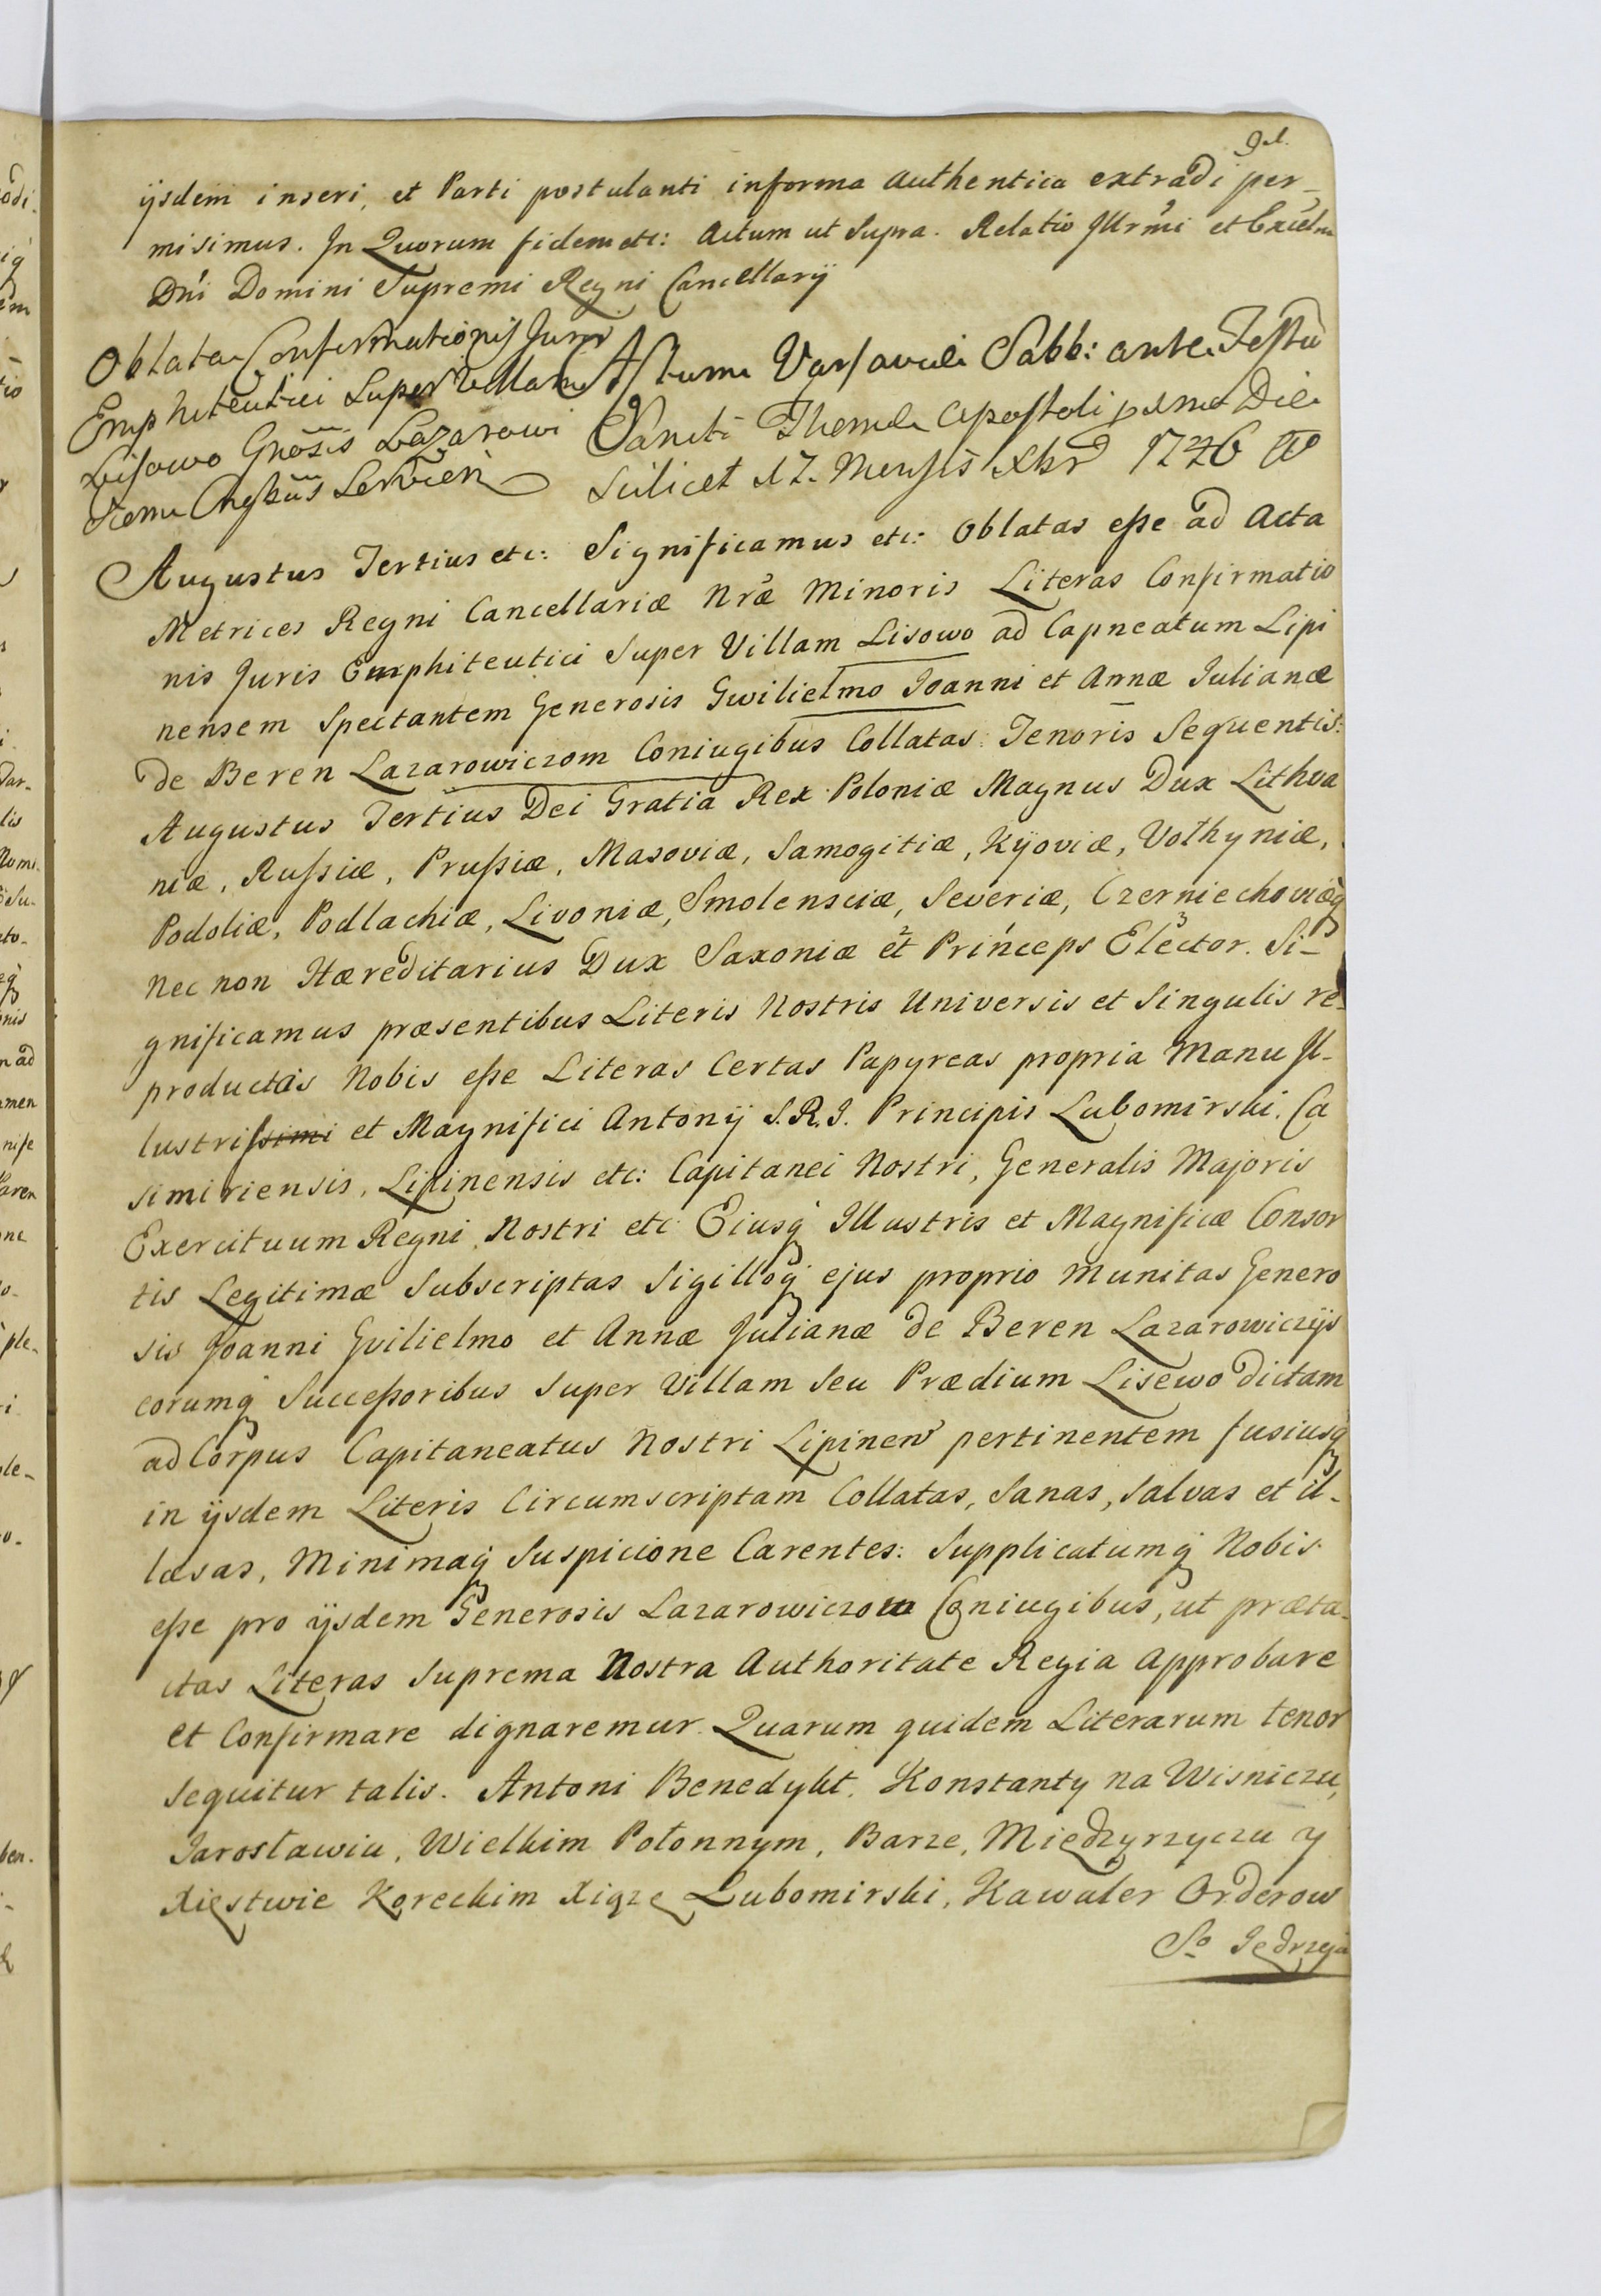 91.
ijsdem inseri, et Parti postulanti informa authentica extradi per-
misimus. In Quorum fidem etc: Actum ut Supra. Relatio Illrmi et Excelm
Dni Domini Supremi Regni Cancellarij
Oblata Confirmationis Juris
Emphiteutici Super Villam
Lisowo Gnosis Lazarowi
czom Coniugibus Servien
Actum Varsaviae Sabb: ante Festu
Sancti Thomae Apostoli proxma Die
Scilicet 17. Mensis Xbr 1746 Ao
Augustus Tertius etc: Significamus etc: Oblatas esse ad Acta
Metrices Regni Cancellariæ Nræ Minoris Literas Confirmatio
nis Juris Emphiteutici Super Villam Lisowo ad Capneatum Lipi
nensem Spectantem Generosis Gwilielmo Ioanni et Annæ Julianæ
de Beren Lazarowiczom Coniugibus Collatas. Tenoris Sequentis:
Augustus Tertius Dei Gratia Rex Poloniæ Magnus Dux Lithva
niæ, Russiæ, Prussiæ, Masoviæ, Samogitiæ, Kijoviæ, Volhyniæ,
Podoliæ, Podlachiæ, Livoniæ, Smolensciæ, Severiæ, Czerniechoviæq
Nec non Hæreditarius Dux Saxoniæ et Princeps Elector. Si-
gnificamus præsentibus Literis Nostris Universis et Singulis re-
productas Nobis esse Literas Certas Papyreas propria Manu Il-
lustrissimi et Magnifici Antonij S.R.I. Principis Lubomirski. Ca
simiriensis, Lipinensis etc: Capitanei Nostri, Generalis Majoris
Exercituum Regni Nostri etc Eiusq Illustris et Magnificæ Consor
tis Legitimæ Subscriptas Sigilloq ejus proprio munitas Genero
sis Joanni Gvilielmo et Annæ Julianæ de Beren Lazarowiczijs
eorumq Successoribus Super Villam Seu Prædium Lisewo dictam
ad Corpus Capitaneatus Nostri Lipinen pertinentem fusiusq
in ijsdem Literis Circumscriptam Collatas, Sanas, Salvas et il-
læsas, Minimaq Suspicione Carentes: Supplicatumq Nobis
esse pro ijsdem Generosis Lazarowiczom Coniugibus, ut præta-
ctas Literas Suprema Nostra Authoritate Regia Approbare
et Confirmare dignaremur. Quarum quidem Literarum tenor
Sequitur talis. Antoni Benedykt. Konstanty na Wisniczu,
Jarosławiu, Wielkim Połonnym, Barze, Międzyrzyczu y
Xięstwie Koreckim Xiąże Lubomirski, Kawaler Orderow
So Jędrzeja